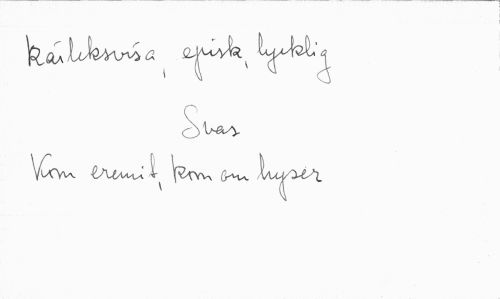 Kärleksvisa, episk, lycklig
Svas
Kom eremit, kom om hyser